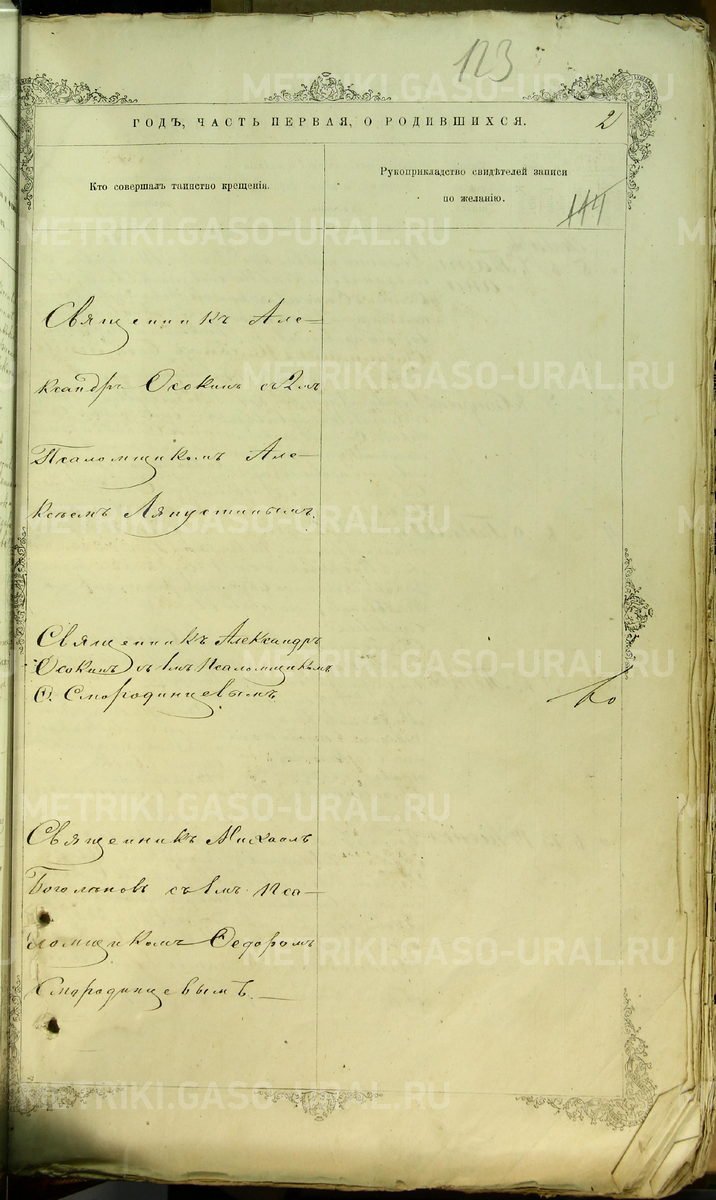 123
ГОДЪ, ЧАСТЬ ПЕРВАЯ, О РОДИВШИХСЯ.
2
Кто совершалъ таинство крещенія.
Рукоприкладство свидѣтелей записи
по желанію.
114
Священникъ Але-
ксандръ Осокинъ съ 2мъ
Псаломщикомъ Але-
ксѣемъ Ляпустинымъ.
Священникъ Александръ
Осокинъ съ 1мъ Псаломщикомъ
Ѳ. Смородинцевымъ
Священникъ Михаилъ
съ 1мъ Пса-
ломщикомъ Ѳедоромъ
Смородинцевымъ.
METRIKI.GASO-URAL.RU